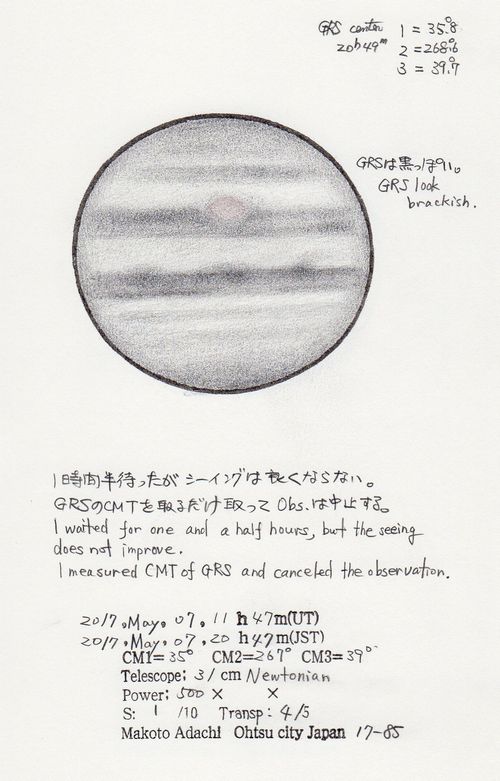 GRS center 1 = 35.°8
20h49m 2 = 268.°6
3 = 39.°7
GRSは黒っぽい。
GRS look
brackish.
1時間半待ったがシーイングは良くならない。
GRSのCMTを取るだけ取ってObs.は中止する。
I waited for one and a half hours, but the seeing
does not improve.
I measured CMT of GRS and canceled the observation.
2017,May,07,11 h47m(UT)
2017,May,07,20 h47m(JST)
CM1=35° CM2=267° CM3=39°
Telescope; 31 cm Newtonian
Power; 500 × ×
S: 1 /10 Transp: 4/5
Makoto Adachi Ohtsu city Japan 17-85